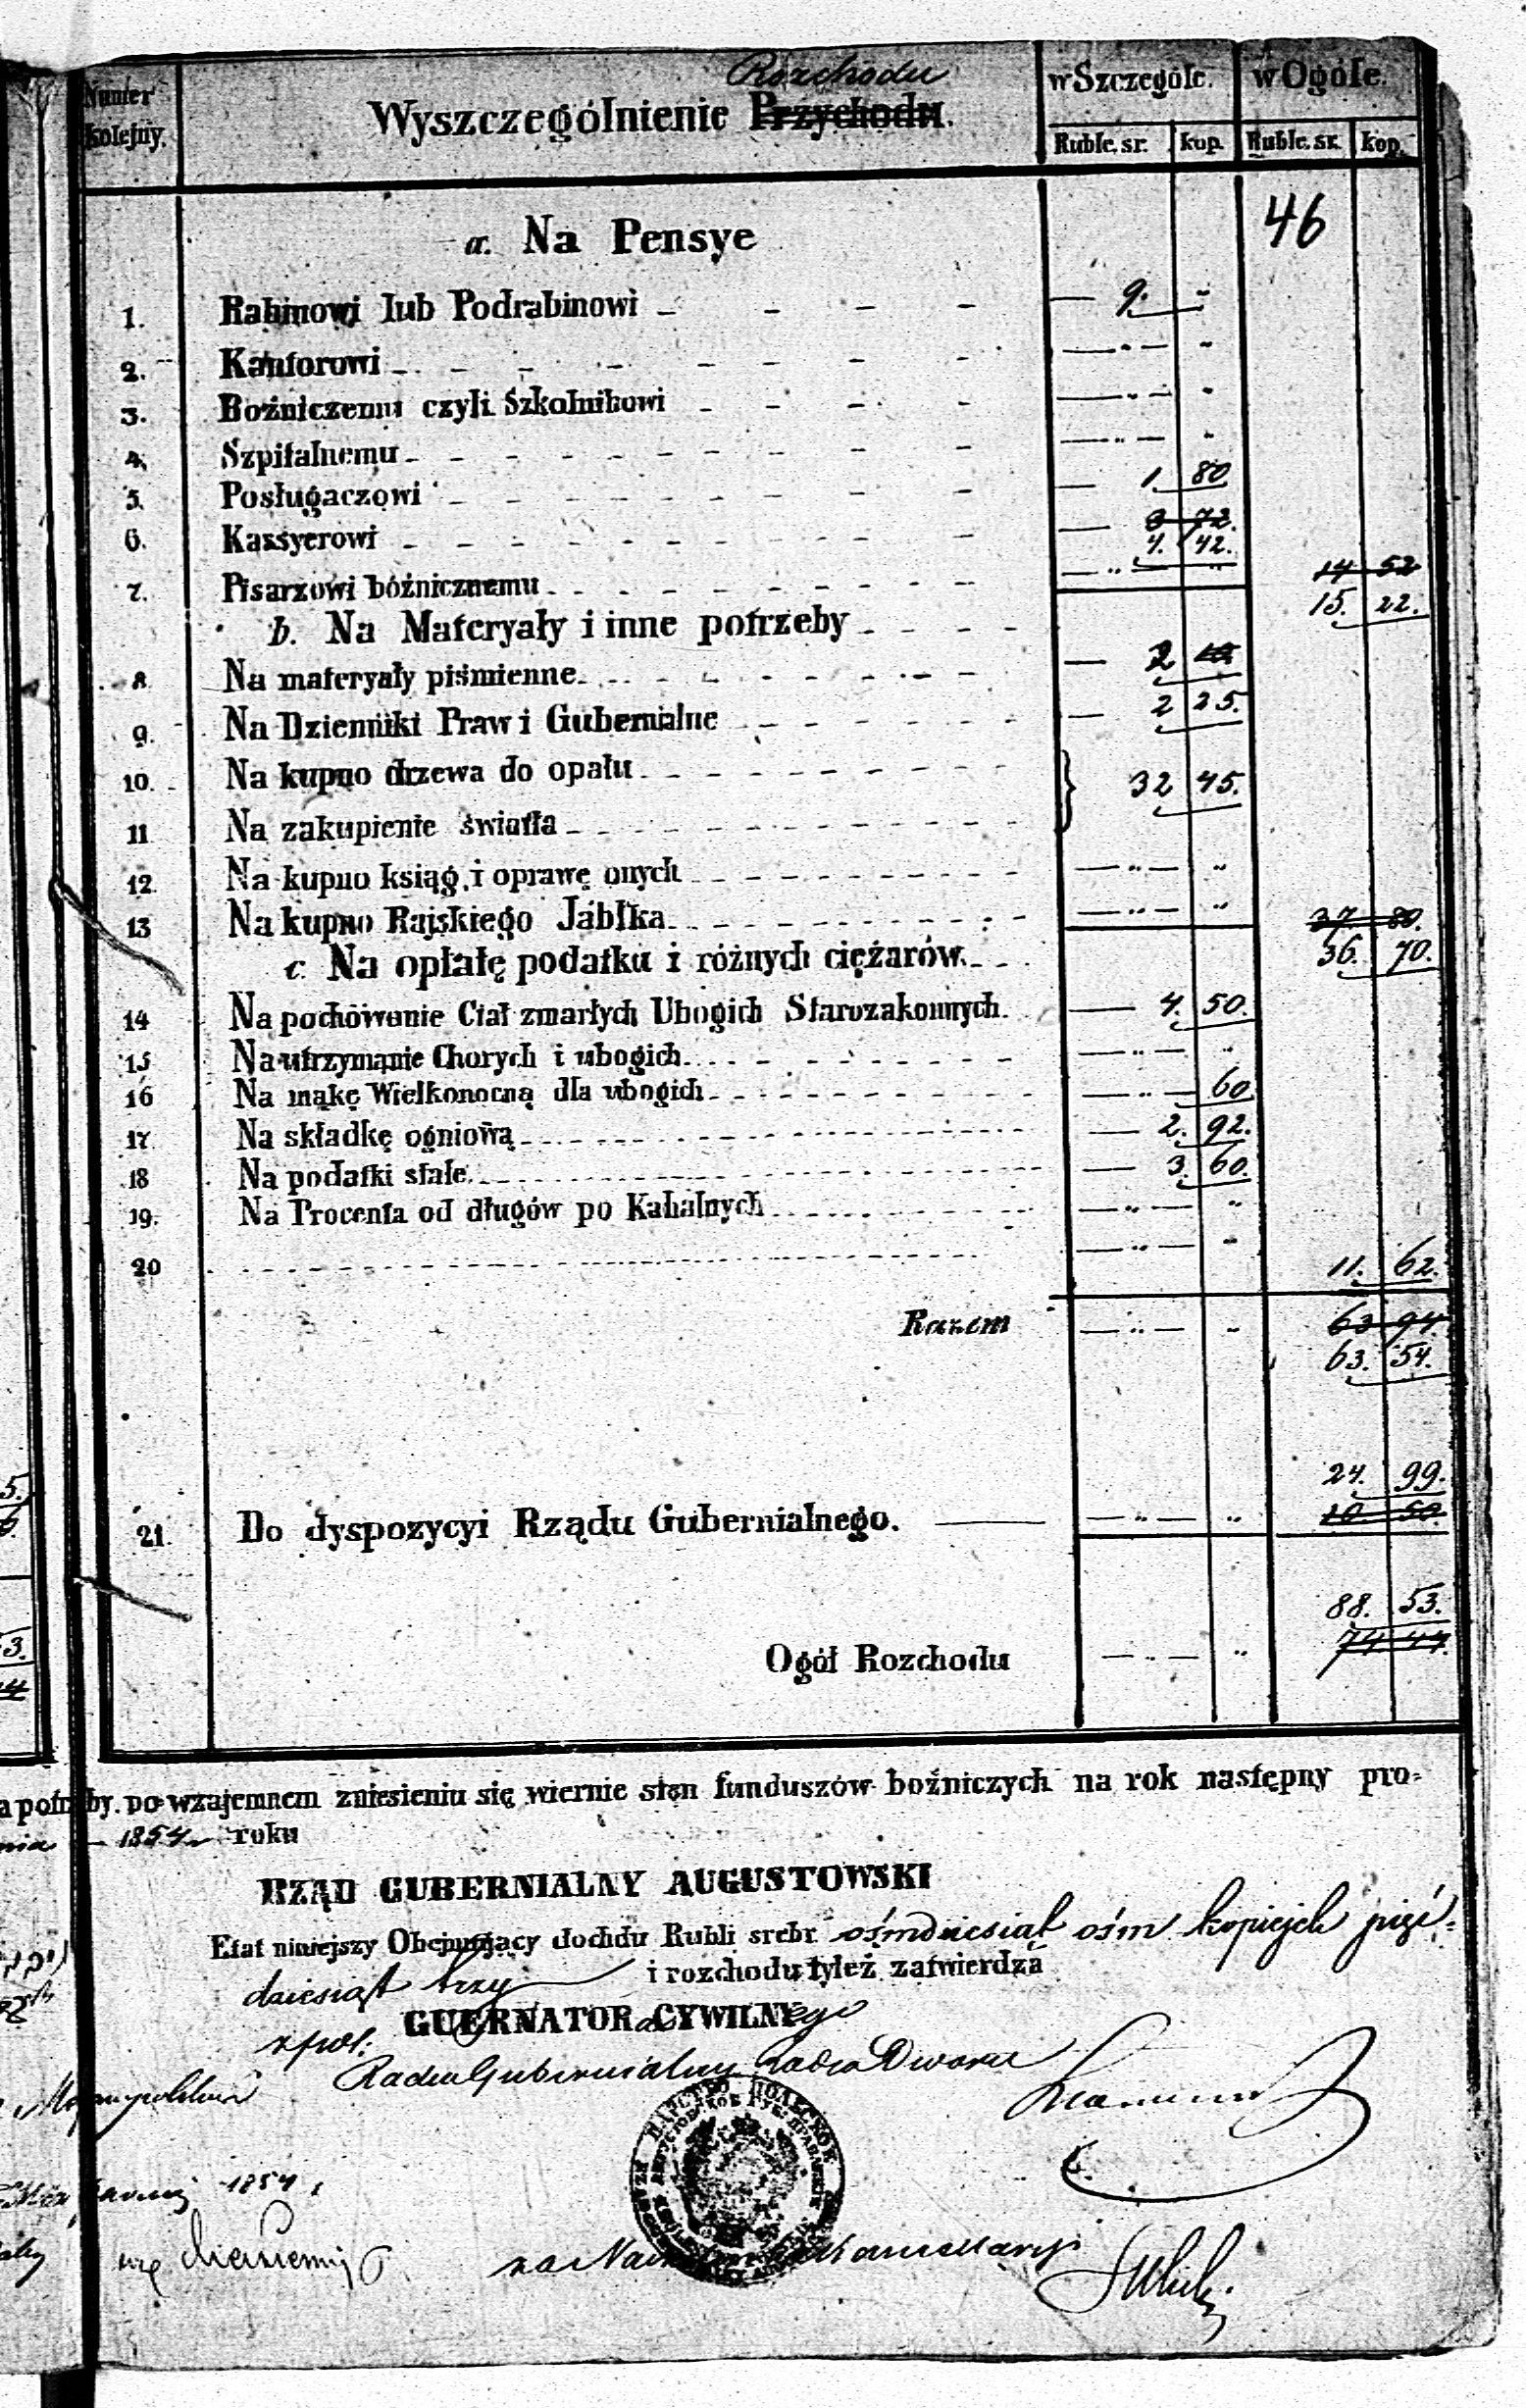 Numer kolejny.
Wyszczególnienie Przychodu. Rozchodu
w Szczególe. w Ogóle.
Ruble. sr. kop. Ruble. sr. kop.
46
a. Na Pensye
1. Rabinowi lub Podrabinowi — 9. "
2. Kantorowi — " — "
3. Bożniczemu czyli Szkolnikowi — " — "
4. Szpitalnemu — " — "
5. Posługaczowi — 1. 80
6. Kassyerowi — 3 72. 4. 42.
7. Pisarzowi bóżnicznemu — " — " 14 52 15. 22.
b. Na Materyały i inne potrzeby
8. Na materyały piśmienne — 2
9. Na Dzienniki Praw i Gubernialne — 2 25.
10. Na kupno drzewa do opału } 32 45.
11 Na zakupienie światła
12. Na kupno ksiąg i oprawę onych — " — "
13 Na kupno Rajskiego Jabłka — " — " 37. 80. 36. 70.
c. Na opłatę podatku i różnych ciężarów.
14 Na pochówanie Ciał zmarłych Ubogich Starozakonnych. — 4. 50.
15 Na utrzymanie Chorych i ubogich — " — "
16 Na mąkę Wielkonocną dla ubogich — " — 60
17. Na składkę ogniową — 2. 92.
18 Na podatki stałe — 3. 60.
19. Na Procenta od długów po Kahalnych — " — "
20 — " — " 11. 62.
Razem — " — " 63 94. 63. 54.
24. 99.
21. Do dyspozycyi Rządu Gubernialnego. — — " — " 10 50.
88. 53.
Ogół Rozchodu — " — " 74 44.
by. po wzajemnem zniesieniu się wiernie stan funduszów bożniczych na rok następny pro-
— 1854 roku
RZĄD GUBERNIALNY AUGUSTOWSKI
Etat niniejszy Obejmujący dochdu Rubli srebr. ośmdziesiąt ośm kopiejek pięć-
dziesiąt trzy i rozchodu tyleż zatwierdza
GUBERNATOR CYWILNY
Radca Gubernialny Radca Dworu
1854
za Kancellaryi